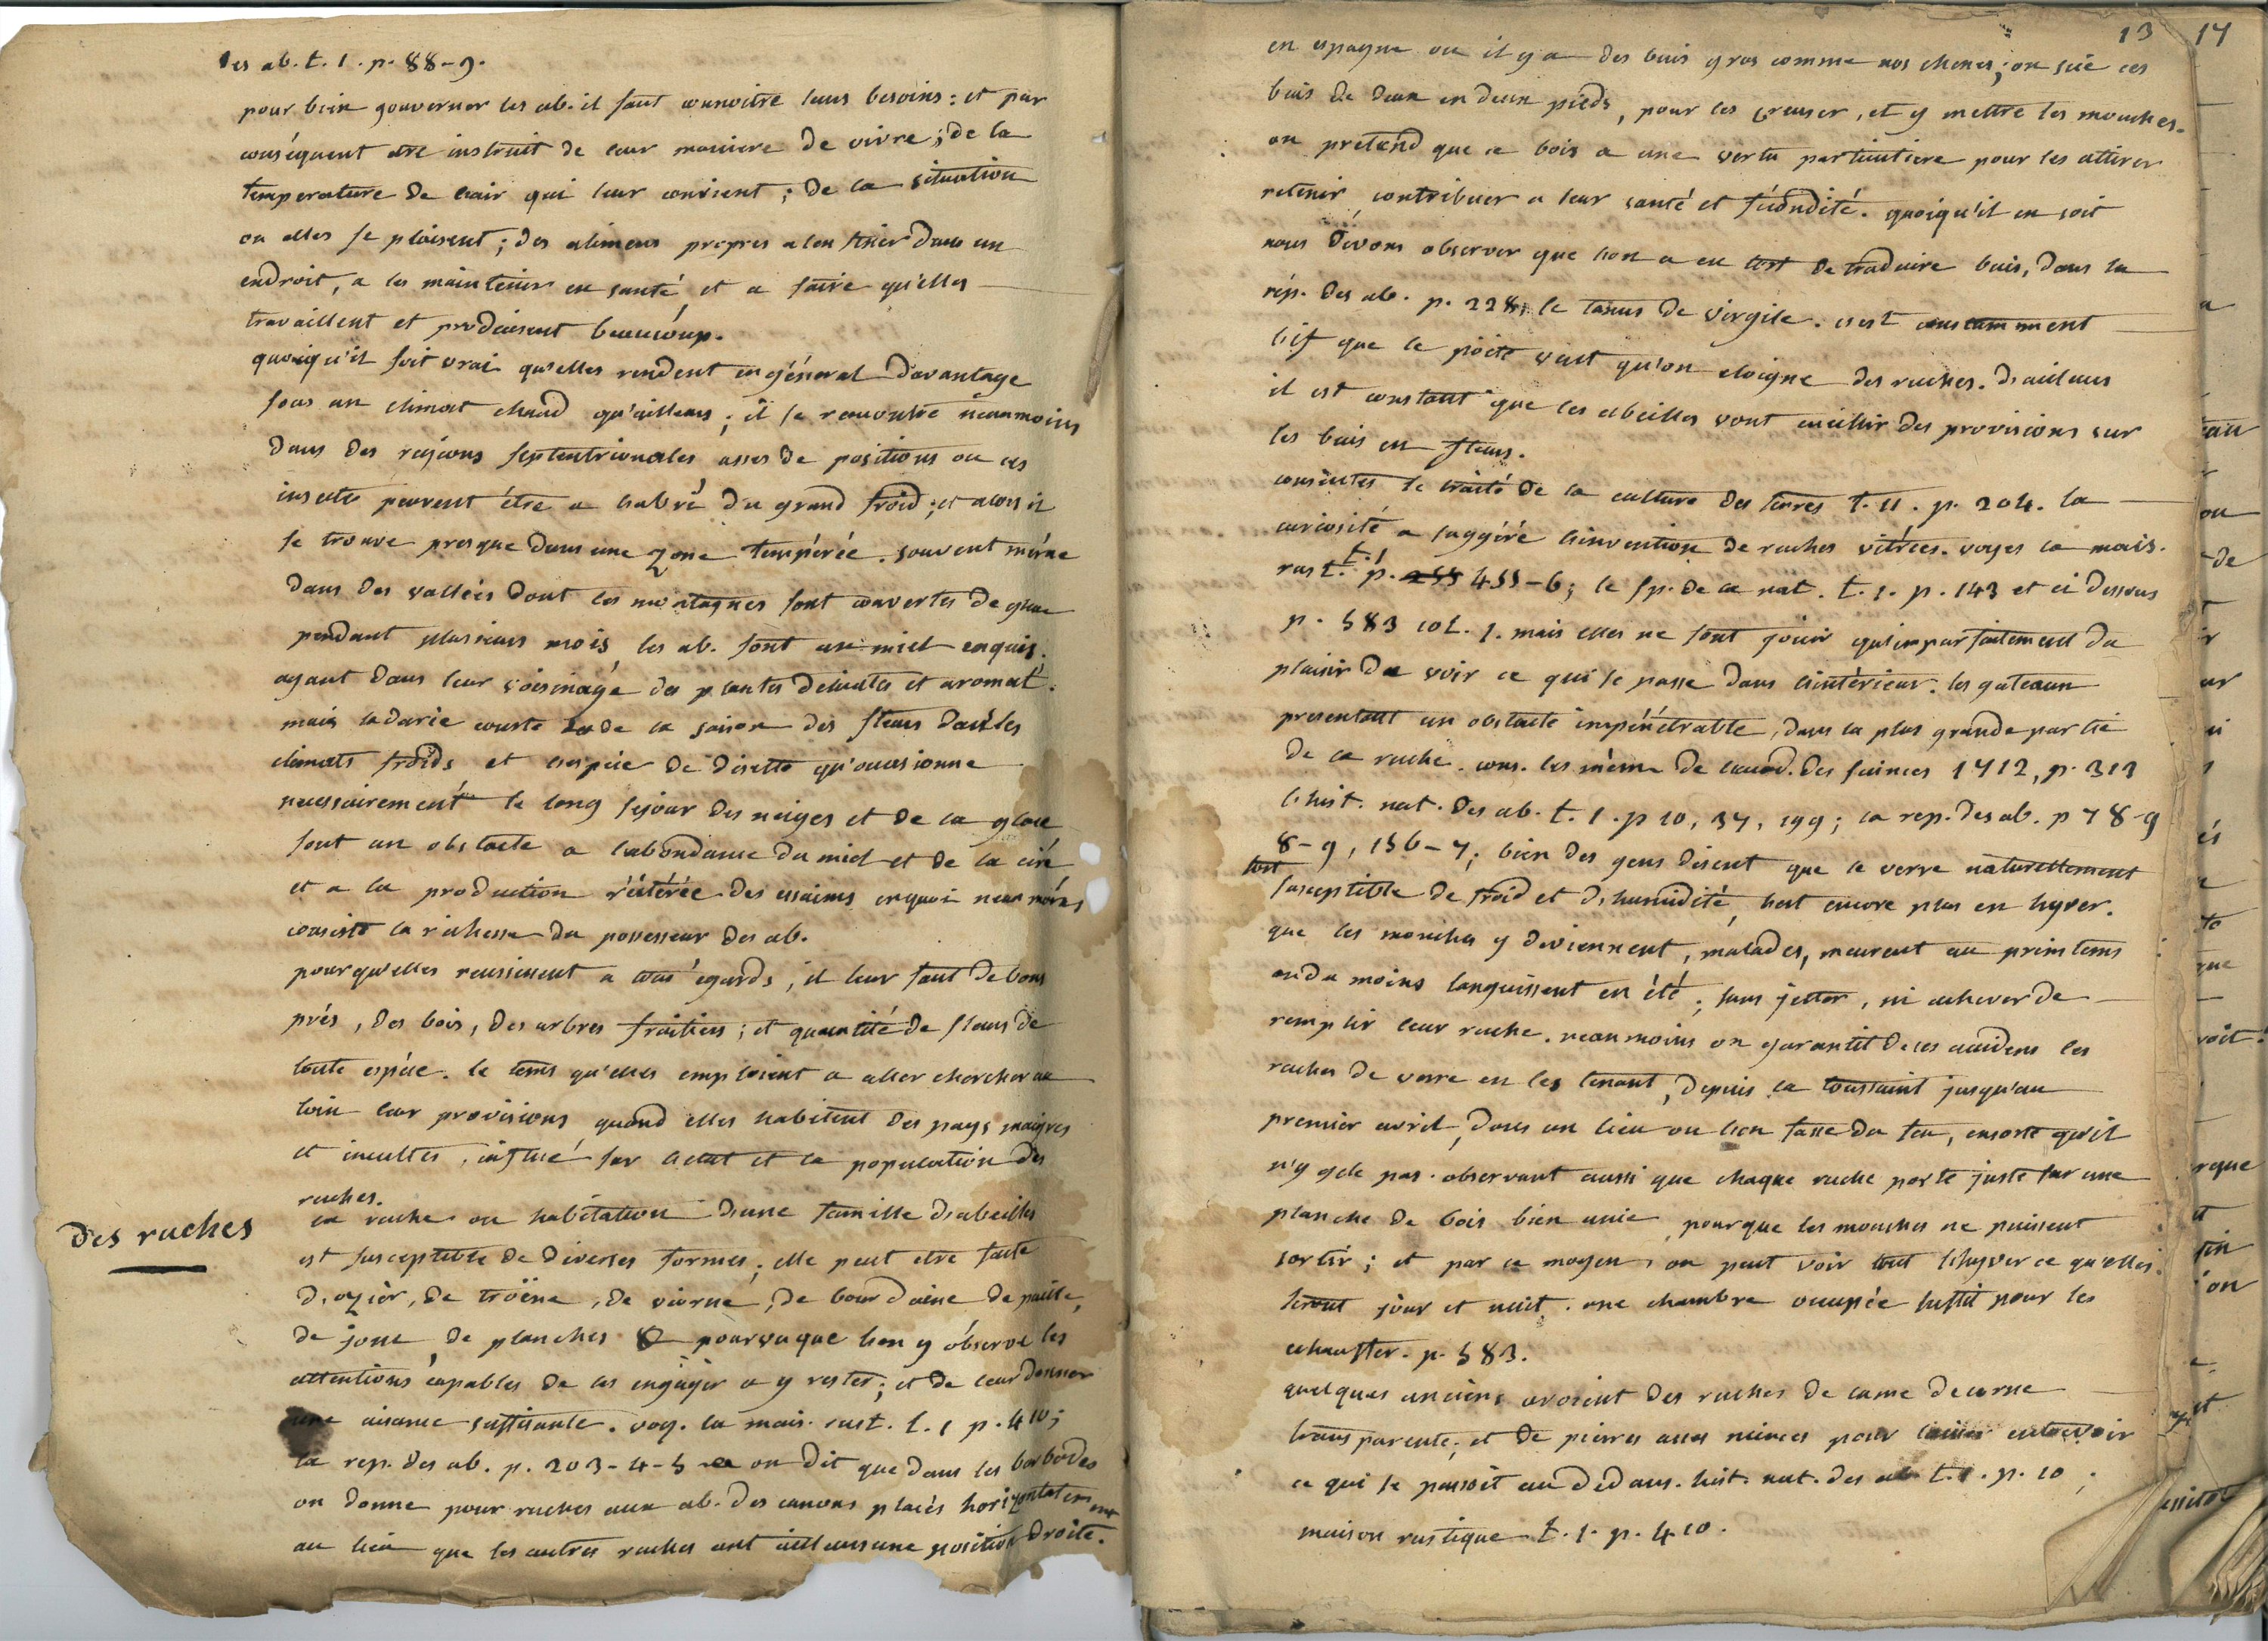 des ab. t. 1. p. 88-9.
pour bien gouverner les ab. il faut connoitre leurs besoins : et par
conséquent etre instruit de leur maniere de vivre ; de la
temperature de l'air qui leur convient ; de la situation
ou elles se plaisent ; des alimens propres a les fixer dans un
endroit, a les maintenir en santé et a faire qu'elles
travaillent et produisent beaucoup.
quoiqu'il soit vrai qu'elles rendent en général davantage
sous un climat chaud qu'ailleurs ; il se rencontre neanmoins
dans des régions septentrionales asses de positions ou ces
insectes peuvent être a l'abri du grand froid ; et alors il
se trouve presque dans une zone tempérée. souvent même
dans des vallées dont les montagnes sont couvertes de glace
pendant plusieurs mois, les ab. font un miel exquis.
ayant dans leur voisinage des plantes delicates et aromat.
mais la durée courte de la saison des fleurs dans les
climats froids et l'espèce de disette qu'occasionne
necessairement le long sejour des neiges et de la glace
sont un obstacle a l'abondance du miel et de la cire
et a la production réitérée des essaims en quoi neanmoins
consiste la richesse du possesseur des ab.
pour qu'elles reussissent a tous égards, il leur faut de bons
prés, des bois, des arbres fruitiers ; et quantité de fleurs de
toute espèce. le tems qu'elles emploient a aller chercher au
loin leur provisions quand elles habitent des pays maigres
et incultes, influe sur l'etat et la population des
ruches.
des ruches
la ruche ou habitation d'une famille d'abeilles
est susceptible de diverses formes ; elle peut etre faite
d'ozier, de troëne, de viorne, de bourdaine de paille,
de jonc, de planches & pourvu que l'on y observe les
attentions capables de les engager a y rester ; et de leur donner
une aisance suffisante. voy. la mais. rust. t. 1 p. 410 ;
la rep. des ab. p. 203-4-5 ou on dit que dans les
on donne pour ruches aux ab. des canons placés horizontalement
au lieu que les autres ruches ont ailleurs une position droite.
13 17
en espagne ou il y a des buis gros comme nos chenes ; on scie ces
buis de deux en deux pieds, pour les creuser, et y mettre les mouches.
on prétend que ce bois a une vertu particuliere pour les attirer
retenir, contribuer a leur santé et fécondité. quoiqu'il en soit
nous devons observer que l'on a eu tort de traduire buis, dans la
rép. des ab. p. 228, le taxus de virgile. c'est constamment
l'if que le poëte veut qu'on eloigne des ruches. d'ailleurs
il est constant que les abeilles vont cueillir des provisions sur
les buis en fleurs.
consultes le traité de la culture des terres t. 11. p. 204. la
curiosité a suggéré l'invention de ruches vitrées. voyes la mais.
rust. t. 1 p. 455-6 ; le sp. de la nat. t. 1. p. 143 et ci dessous
p. 583 col. 1. mais elles ne font jouir qu'imparfaitement du
plaisir de voir ce qui se passe dans l'intérieur. les gateaux
presentant un obstacle impénétrable, dans la plus grande partie
de la ruche. cons. les mém. de l'acad. des sciences 1712, p. 313
l'hist. nat. des ab. t. 1. p 10, 37, 199 ; la rep. des ab. p 78-9
8-9, 156-7 ; bien des gens disent que le verre naturellement
susceptible de froid et d'humidité, l'est encore plus en hyver.
que les mouches y deviennent malades, meurent au printems
ou du moins languissent en été ; sans jetter, ni achever de
remplir leur ruche. neanmoins on garantit de ces accidens les
ruches de verre en les tenant, depuis la toussaint jusqu'au
premier avril, dans un lieu ou l'on fasse du feu, ensorte qu'il
n'y gele pas. observant aussi que chaque ruche porte juste sur une
planche de bois bien unie, pour que les mouches ne puissent
sortir ; et par ce moyen, on peut voir tout l'hyver ce qu'elles
font jour et nuit. une chambre occupée suffit pour les
echauffer. p. 583.
quelques anciens avoient des ruches de lame de corne
transparente, et de pierres asses minces pour laisser entrevoir
ce qui se passoit au dedans. hist. nat. des ab. t. 1. p. 10 ;
maison rustique t. 1. p. 410.